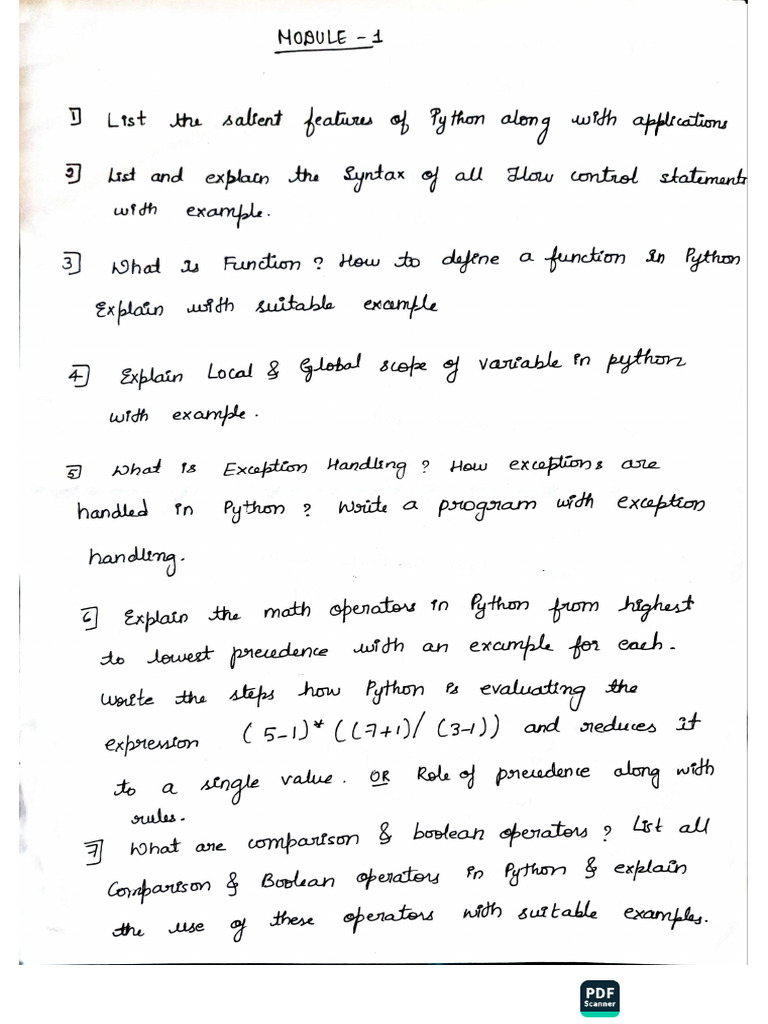 MODULE - 1
1] List the salient features of Python along with applications
2] List and explain the Syntax of all Flow control statements
with example.
3] What is Function? How to define a function in Python
Explain with suitable example
4] Explain Local & Global scope of variable in python
with example.
5] What is Exception Handling? How exceptions are
handled in Python? Write a program with exception
handling.
6] Explain the math operators in Python from highest
to lowest precedence with an example for each.
Write the steps how Python is evaluating the
expression (5-1)*((7+1)/(3-1)) and reduces it
to a single value. OR Role of precedence along with
rules.
7] What are comparison & boolean operators? List all
Comparison & Boolean operators in Python & explain
the use of these operators with suitable examples.
PDF
Scanner